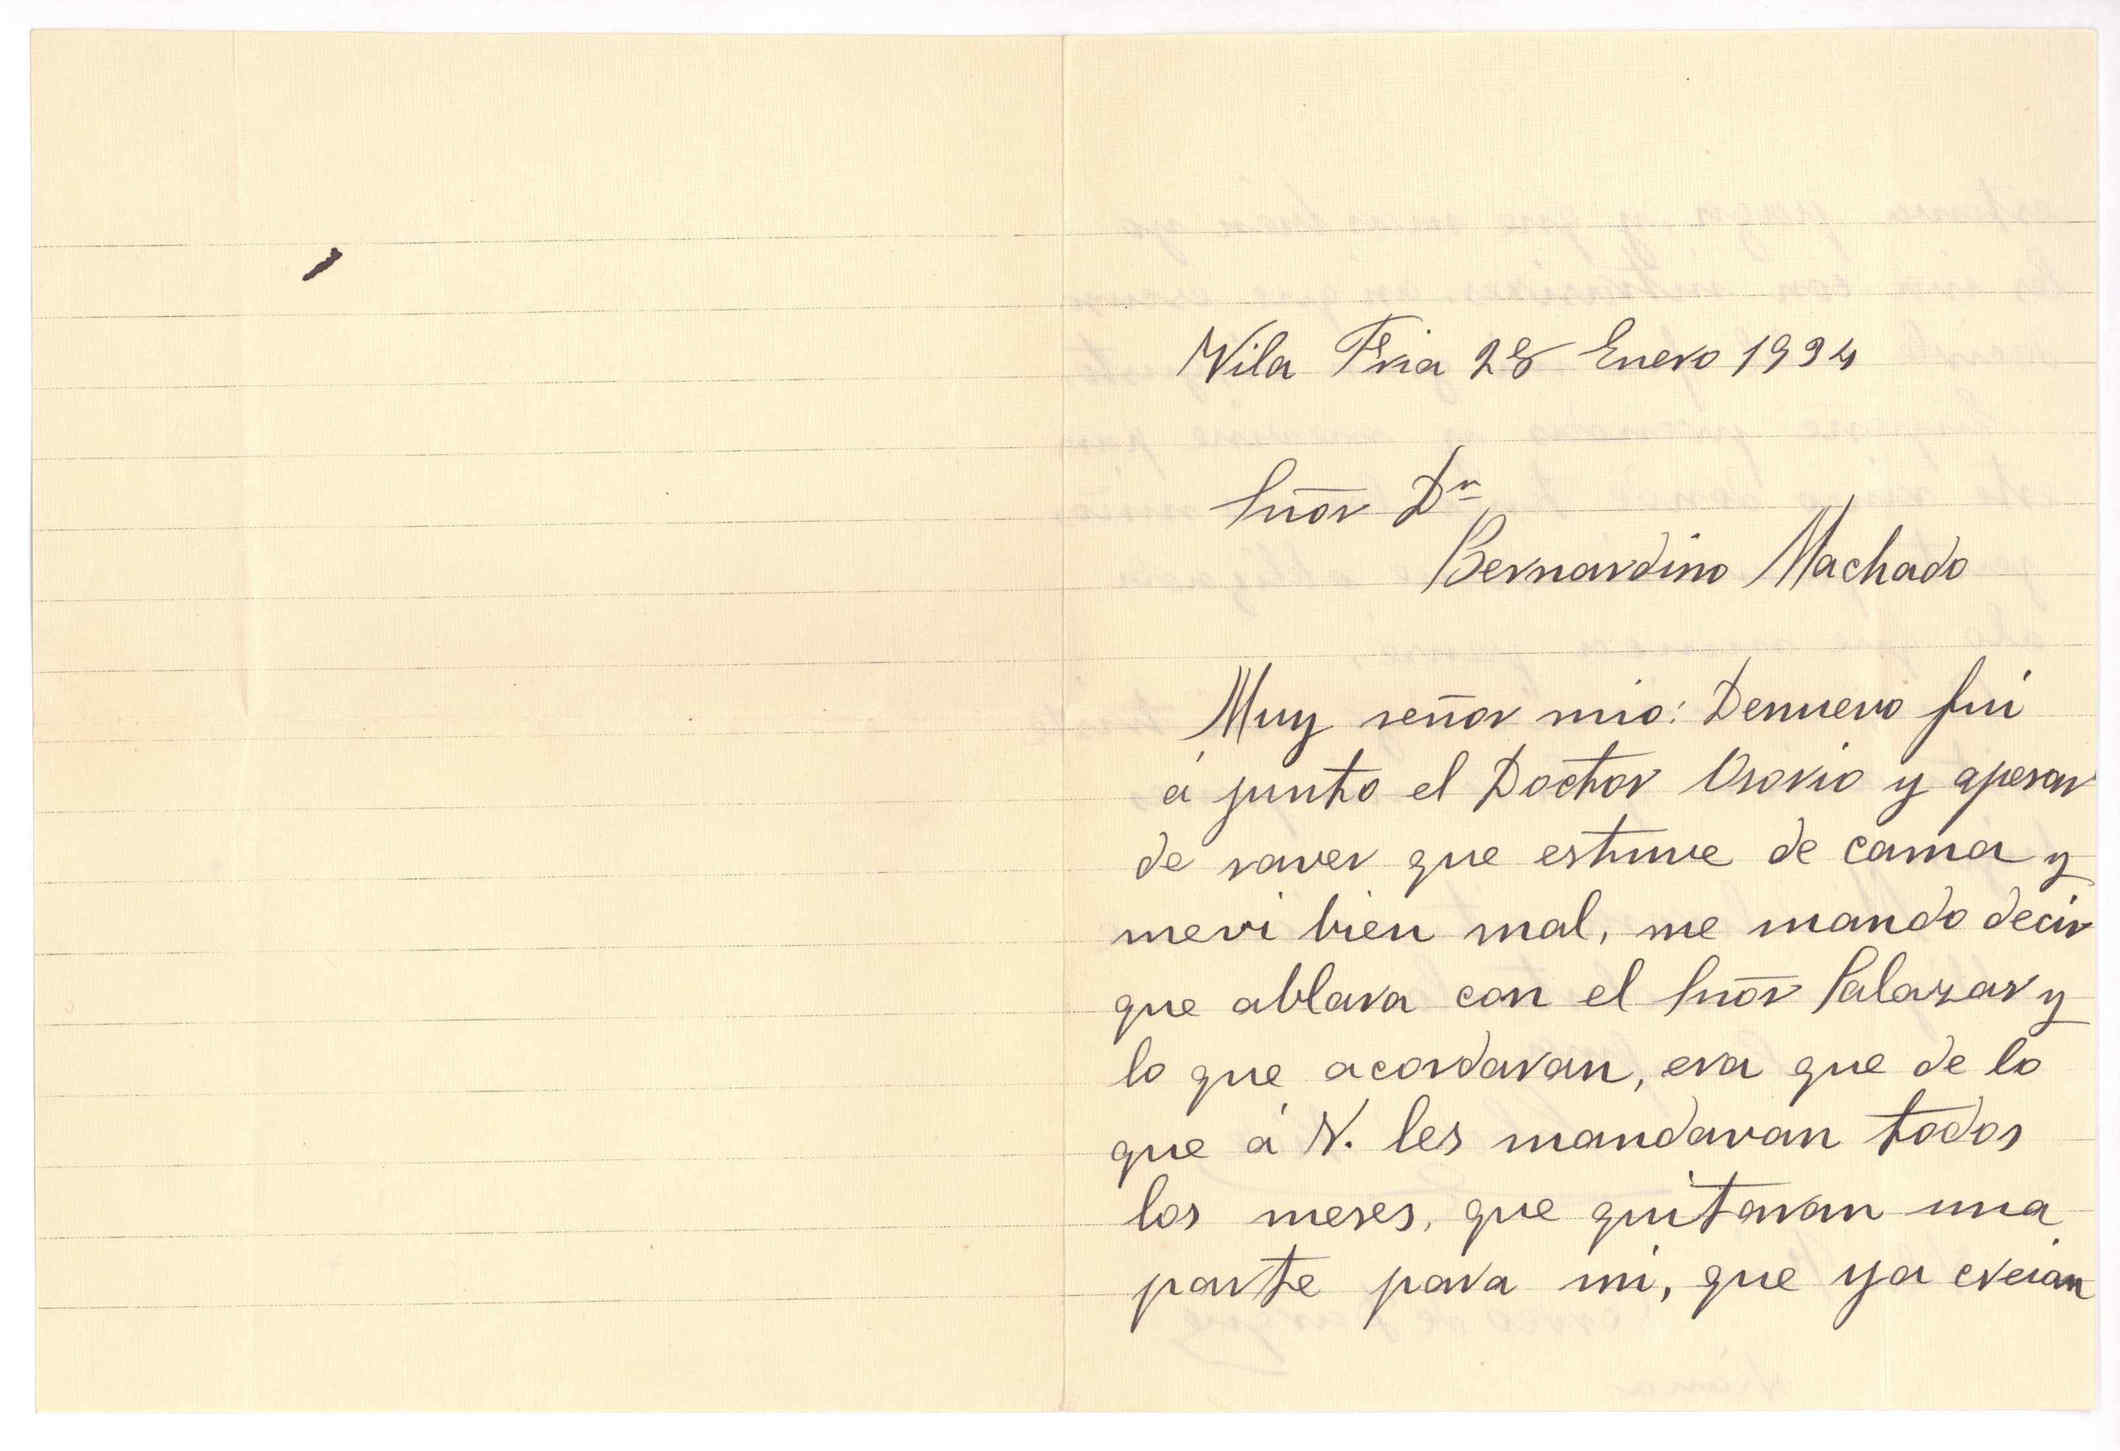 Vila Fria 28 Enero 1934
Señor Dn
Bernardino Machado
Muy señor mio: Denuevo fui
á junto el Doctor Osorio y apesar
de saver que estuve de cama y
mevi bien mal, me mando decir
que ablara con el Señor Salazar y
lo que acordaran, era que de lo
que á V. les mandavan todos
los meses, que quitaran una
parte para mi, que ya creian